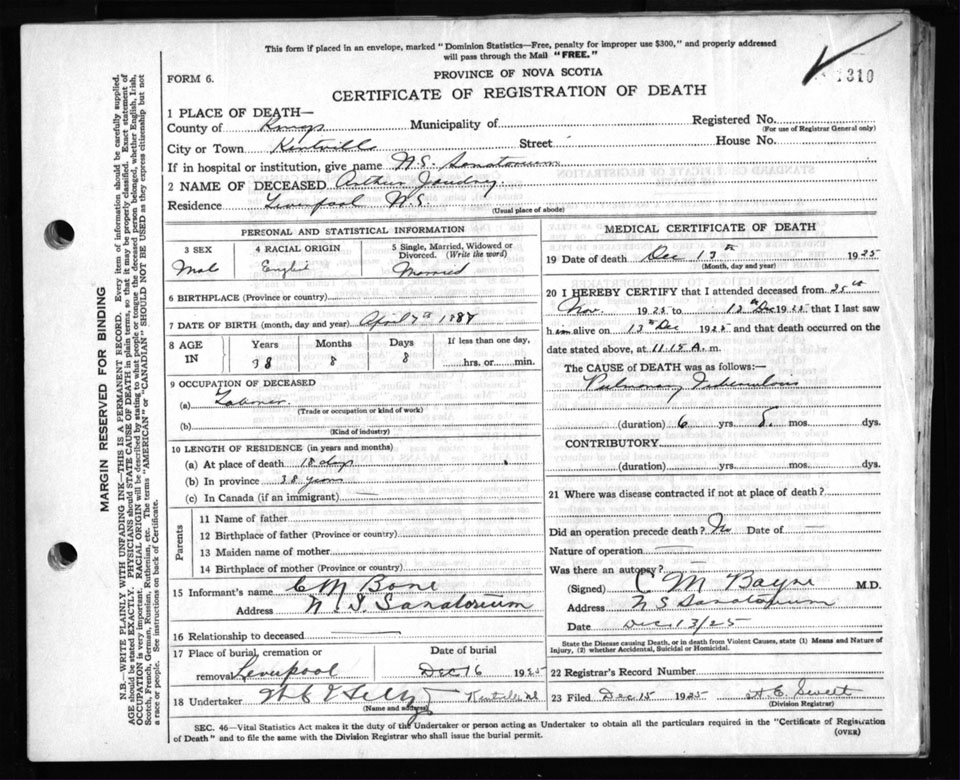 This form if placed in an envelope, marked "Dominion Statistics—Free, penalty for improper use $300," and properly addressed
will pass through the Mail "FREE."
1310
FORM 6.
PROVINCE OF NOVA SCOTIA
CERTIFICATE OF REGISTRATION OF DEATH
1 PLACE OF DEATH—
County of Kings Municipality of Registered No.
(For use of Registrar General only)
City or Town Kentville Street House No.
If in hospital or institution, give name N.S. Sanatorium
2 NAME OF DECEASED Arthur
Residence Liverpool N.S.
(Usual place of abode)
PERSONAL AND STATISTICAL INFORMATION
3 SEX 4 RACIAL ORIGIN 5 Single, Married, Widowed or Divorced. (Write the word)
Male English Married
6 BIRTHPLACE (Province or country)
7 DATE OF BIRTH (month, day and year) April 7th 1887
8 AGE IN Years Months Days If less than one day,
38 8 8 hrs. or min.
9 OCCUPATION OF DECEASED
(a) Laborer
(Trade or occupation or kind of work)
(b)
(Kind of industry)
10 LENGTH OF RESIDENCE (in years and months)
(a) At place of death 18 days
(b) In province 38 years
(c) In Canada (if an immigrant) —
Parents
11 Name of father
12 Birthplace of father (Province or country)
13 Maiden name of mother
14 Birthplace of mother (Province or country)
15 Informant's name C M Bone
Address N. S. Sanatorium
16 Relationship to deceased —
17 Place of burial, cremation or removal Liverpool Date of burial Dec 16 1925
18 Undertaker Kentville NS
(Name and address)
MEDICAL CERTIFICATE OF DEATH
19 Date of death Dec 13th 1925
(Month, day and year)
20 I HEREBY CERTIFY that I attended deceased from 25th
Nov. 1925 to 13th Dec 1925 that I last saw
him alive on 13th Dec 1925 and that death occurred on
the date stated above, at 11.15 A. m.
The CAUSE OF DEATH was as follows:—
Pulmonary Tuberculosis
(duration) 6 yrs. 8. mos. dys.
CONTRIBUTORY
(duration) yrs. mos. dys.
21 Where was disease contracted if not at place of death?
Did an operation precede death? No Date of —
Nature of operation —
Was there an autopsy? —
(Signed) C M Bayne M.D.
Address N S Sanatorium
Date Dec 13/25
State the Disease causing Death, or in death from Violent Causes, state (1) Means and Nature of
Injury, (2) whether Accidental, Suicidal or Homicidal.
22 Registrar's Record Number
23 Filed Dec 15 1925
(Division Registrar)
SEC. 46—Vital Statistics Act makes it the duty of the Undertaker or person acting as Undertaker to obtain all the particulars required in the "Certificate of Registration
of Death" and to file the same with the Division Registrar who shall issue the burial permit.
(OVER)
MARGIN RESERVED FOR BINDING
N.B.—WRITE PLAINLY WITH UNFADING INK—THIS IS A PERMANENT RECORD. Every item of information should be carefully supplied.
AGE should be stated EXACTLY. PHYSICIANS should STATE CAUSE OF DEATH in plain terms, so that it may be properly classified. Exact statement of
OCCUPATION is very important. RACIAL ORIGIN will be described by stating to what people or tongue the deceased person belonged, whether English, Irish,
Scotch, French, German, Russian, Ruthenian, etc. The terms "AMERICAN" or "CANADIAN" SHOULD NOT BE USED as they express citizenship but not
a race or people. See instructions on back of Certificate.